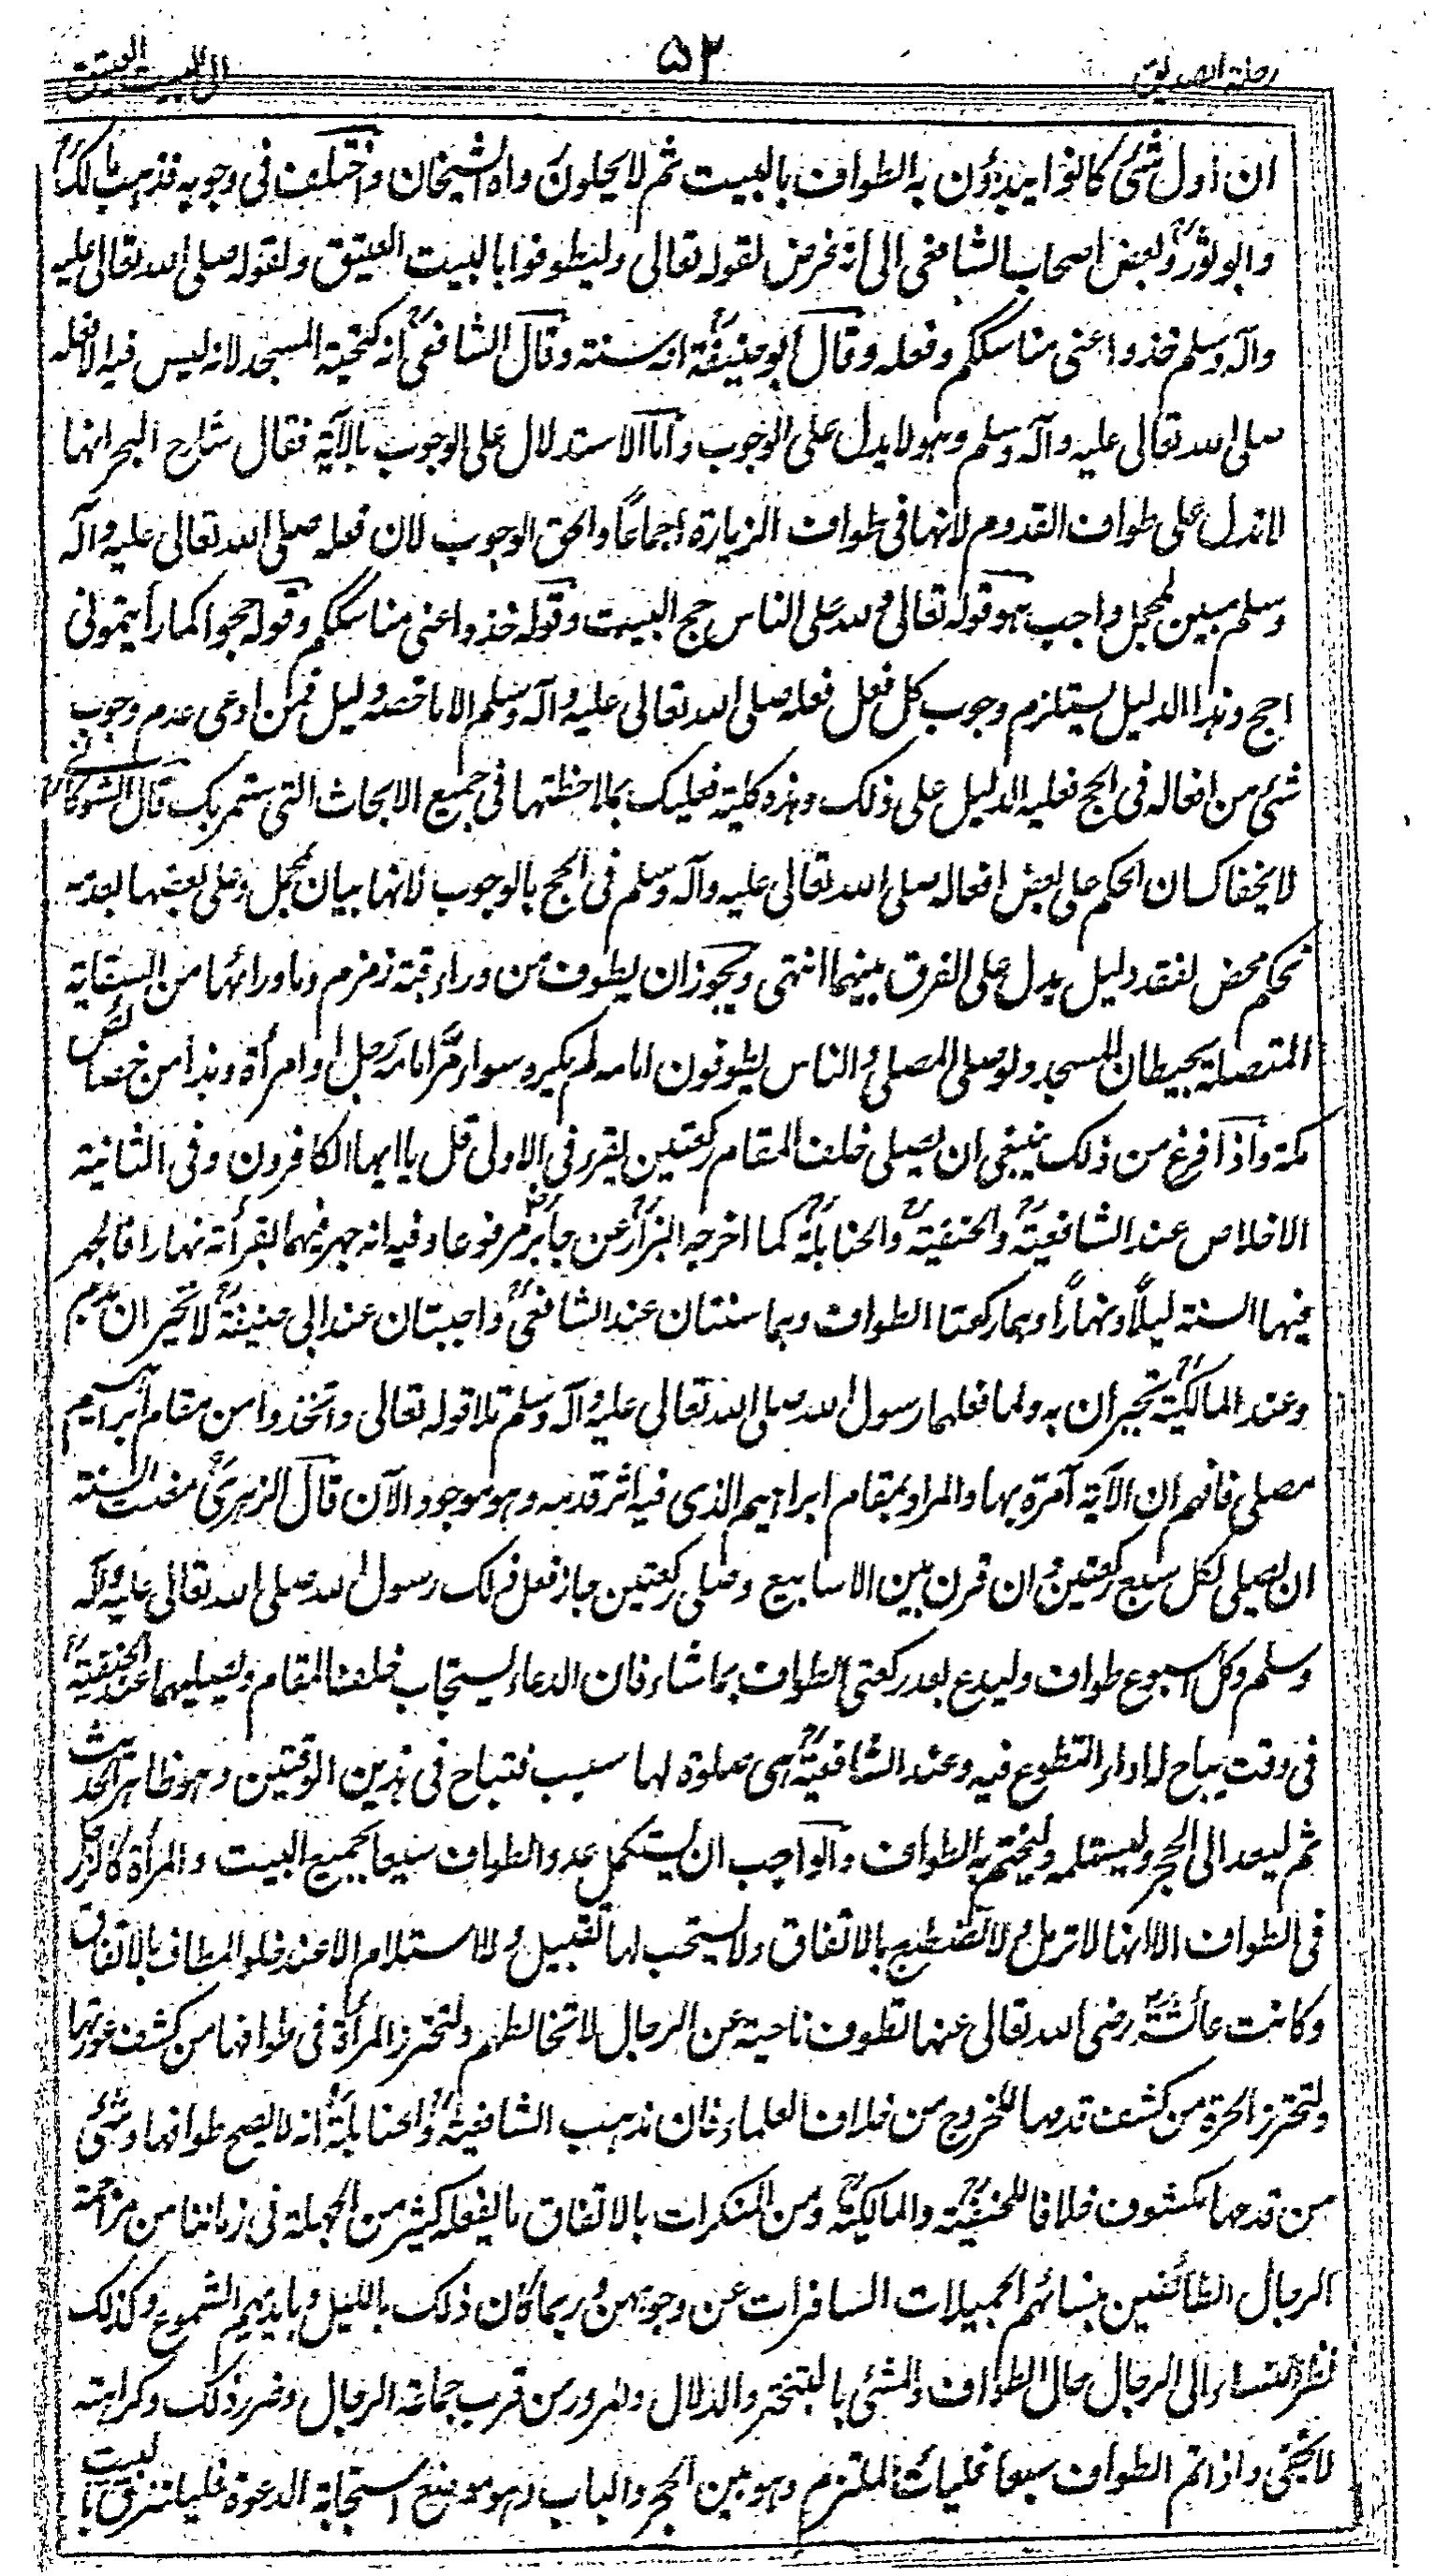 رحلة الصديق ٥٢ الى البيت العتيق
ان اول شئ كانوا يبدؤن به الطواف بالبيت ثم لا يحلون رواه الشيخان واختلف فى وجوبه فذهب مالك
وابو ثور وبعض اصحاب الشافعى الى انه فرض لقوله تعالى وليطوفوا بالبيت العتيق ولقوله صلى الله تعالى عليه
وآله وسلم خذوا عنى مناسككم وفعله وقال ابو حنيفة انه سنة وقال الشافعى انه كتحية المسجد لانه ليس فيه الا فعله
صلى الله تعالى عليه وآله وسلم وهو لا يدل على الوجوب واما الاستدلال على الوجوب بالآية فقال شارح البحر انها
لا تدل على طواف القدوم لانها فى طواف الزيارة اجماعاً والحق الوجوب لان فعله صلى الله تعالى عليه وآله
وسلم مبين لمجمل واجب هو قوله تعالى ولله على الناس حج البيت وقوله خذوا عنى مناسككم وقوله حجوا كما رأيتمونى
احج وهذا الدليل يستلزم وجوب كل فعل فعله صلى الله تعالى عليه وآله وسلم الا ما خصه دليل فمن ادعى عدم وجوب
شئ من افعاله فى الحج فعليه الدليل على ذلك وهذه كلية فعليك بملاحظتها فى جميع الابحاث التى ستمر بك قال الشوكانى
لا يخفاك ان الحكم على بعض افعاله صلى الله تعالى عليه وآله وسلم فى الحج بالوجوب لانها بيان لمجمل وعلى بعضها بعدمه
تحكم محض لفقد دليل يدل على الفرق بينهما انتهى ويجوز ان يطوف من وراء قبة زمزم وما ورائها من السقاية
المتصلة بحيطان المسجد ولو صلى المصلى والناس يطوفون امامه لم يكره سواء مر امامه رجل او امرأة وهذا من خصائص
مكة واذا فرغ من ذلك ينبغى ان يصلى خلف المقام ركعتين يقرء فى الاولى قل يا ايها الكافرون وفى الثانية
الاخلاص عند الشافعية والحنفية والحنابلة كما اخرجه البزار عن جابر مرفوعا وفيه انه جهر فيهما بالقرأة نهارا فالجهر
فيها السنة ليلاً ونهاراً وهما ركعتا الطواف وهما سنتان عند الشافعى واجبتان عند ابى حنيفة لا تجبران بدم
وعند المالكية تجبران به ولما فعلهما رسول الله صلى الله تعالى عليه وآله وسلم تلا قوله تعالى واتخذوا من مقام ابراهيم
مصلى فافهم ان الآية آمرة بها والمراد بمقام ابراهيم الذى فيه اثر قدمه وهو موجود الآن قال الزهرى مضت السنة
ان يصلى لكل سبع ركعتين وان قرن بين الاسابيع وصلى ركعتين جاز فعل ذلك رسول الله صلى الله تعالى عليه وآله
وسلم وكل اسبوع طواف وليدع بعد ركعتى الطواف بما شاء فان الدعاء يستجاب خلف المقام ويصليهما عند الحنفية
فى وقت يباح له اداء التطوع فيه وعند الشافعية هى صلوة لها سبب فتباح فى هذين الوقتين وهو ظاهر الحديث
ثم ليعد الى الحجر وليستلمه وليختم به الطواف والواجب ان يستكمل عدد الطواف سبعا بجميع البيت والمرأة كالرجل
فى الطواف الا انها لا ترمل ولا تضطبع بالاتفاق ولا يستحب لها تقبيل ولا استلام الا عند خلو المطاف بالاتفاق
وكانت عائشة رضى الله تعالى عنها تطوف ناحية عن الرجال لا تخالطهم ولتحترز المرأة فى طوافها من كشف عورتها
ولتحترز الحرة من كشف قدمها للخروج من خلاف العلماء فان مذهب الشافعية والحنابلة انه لا يصح طوافها وشئ
من قدمها مكشوف خلافا للحنفية والمالكية ومن المنكرات بالاتفاق ما يفعله كثير من الجهلة فى زماننا من مزاحمة
الرجال الطائفين بنسائهم الجميلات السافرات عن وجوههن وربما كان ذلك بالليل وبايديهم الشموع وكذلك
نظر النساء الى الرجال حال الطواف والمشى بالتبختر والدلال والمرور من قرب جماعة الرجال وضرر ذلك وكراهته
لا تخفى واذا تم الطواف سبعا فليأت الملتزم وهو بين الحجر والباب وهو موضع استجابة الدعوة فليلتزق بالبيت